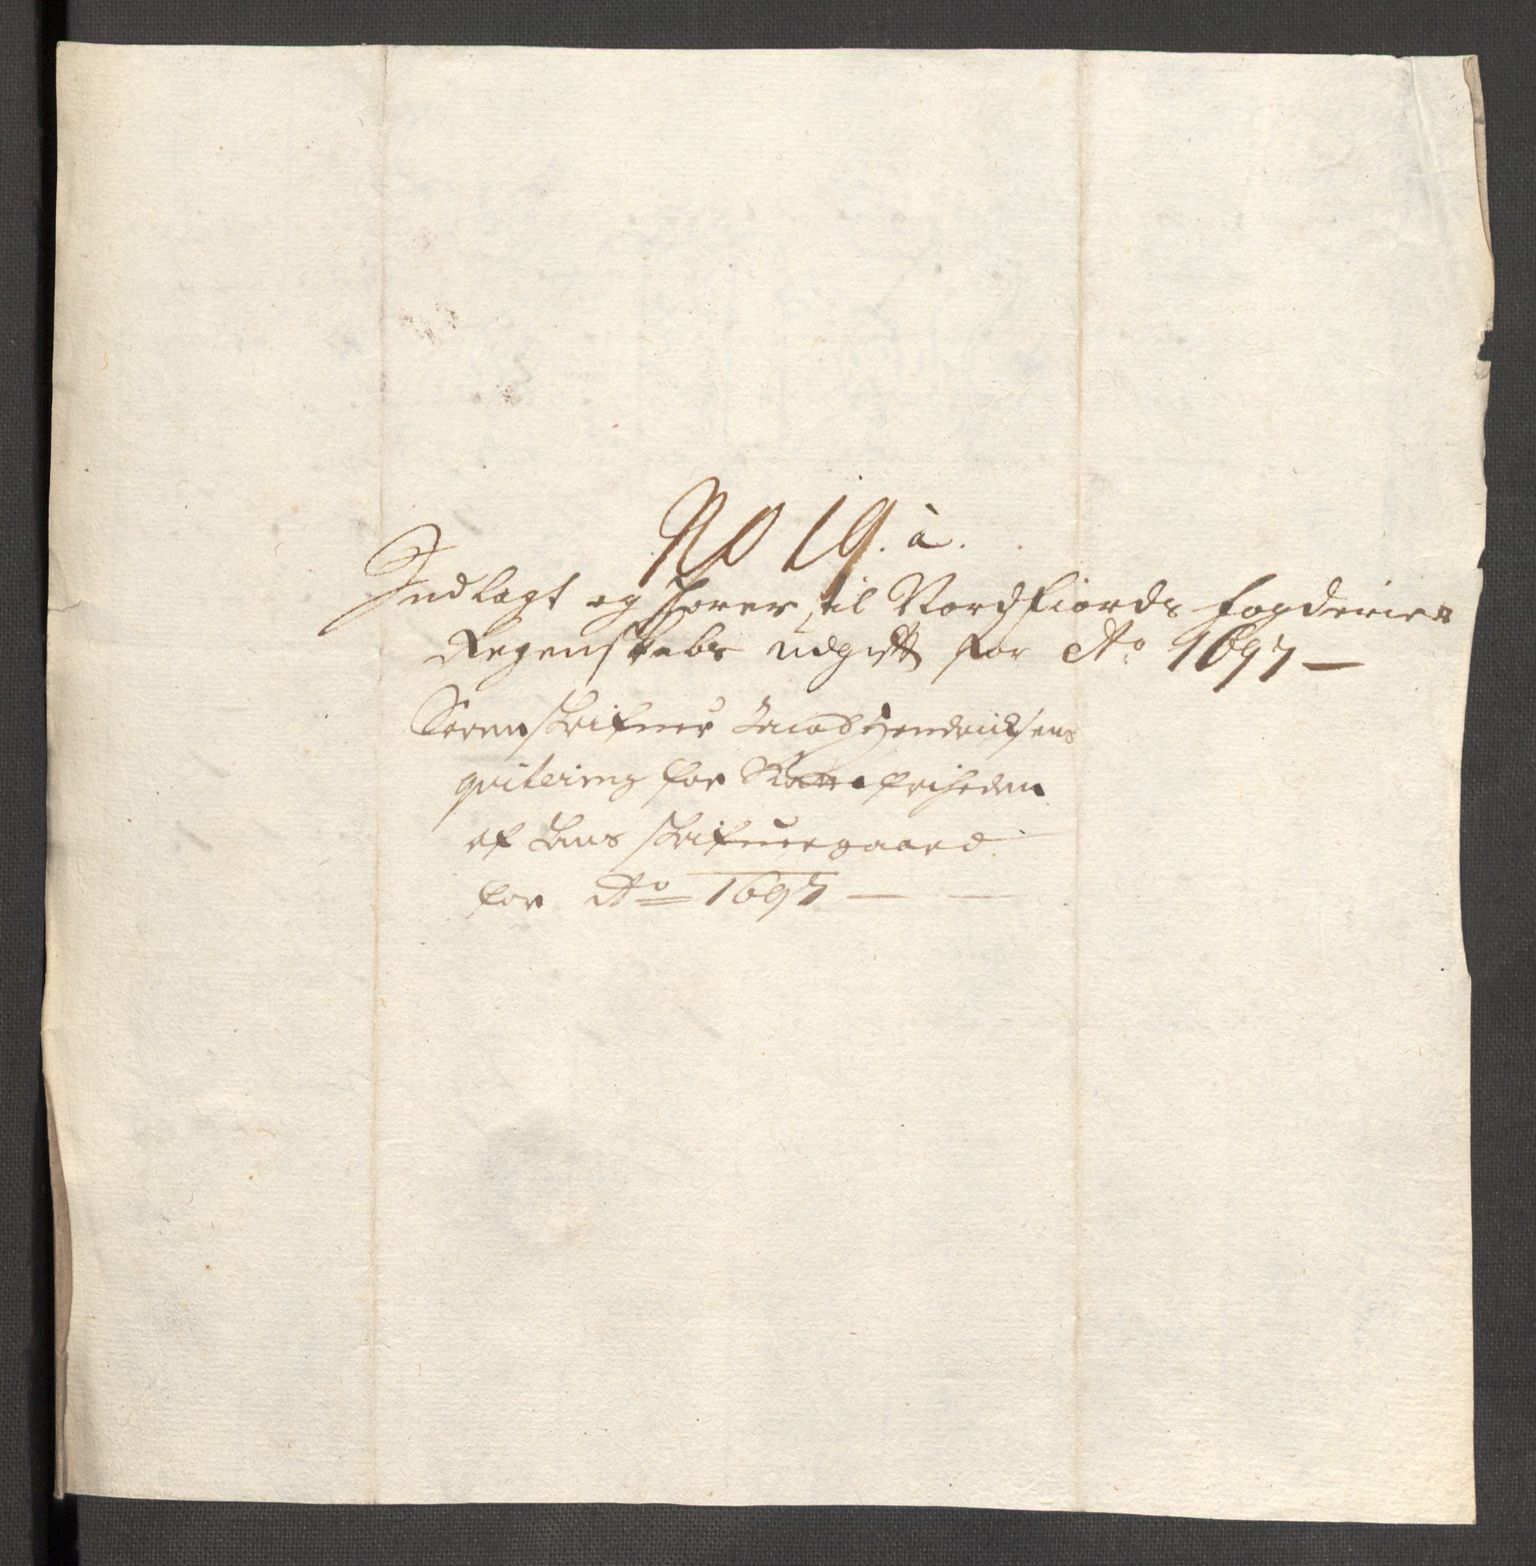 No 19. à.
Indlagt og hører til Nordfiords fogderies
Regenskabs udgift for Ao. 1697 —
Sorenskrifver Jacob Hendrichsens
qvitering for friheden
af hans skrifvergaard
for Ao 1697 —